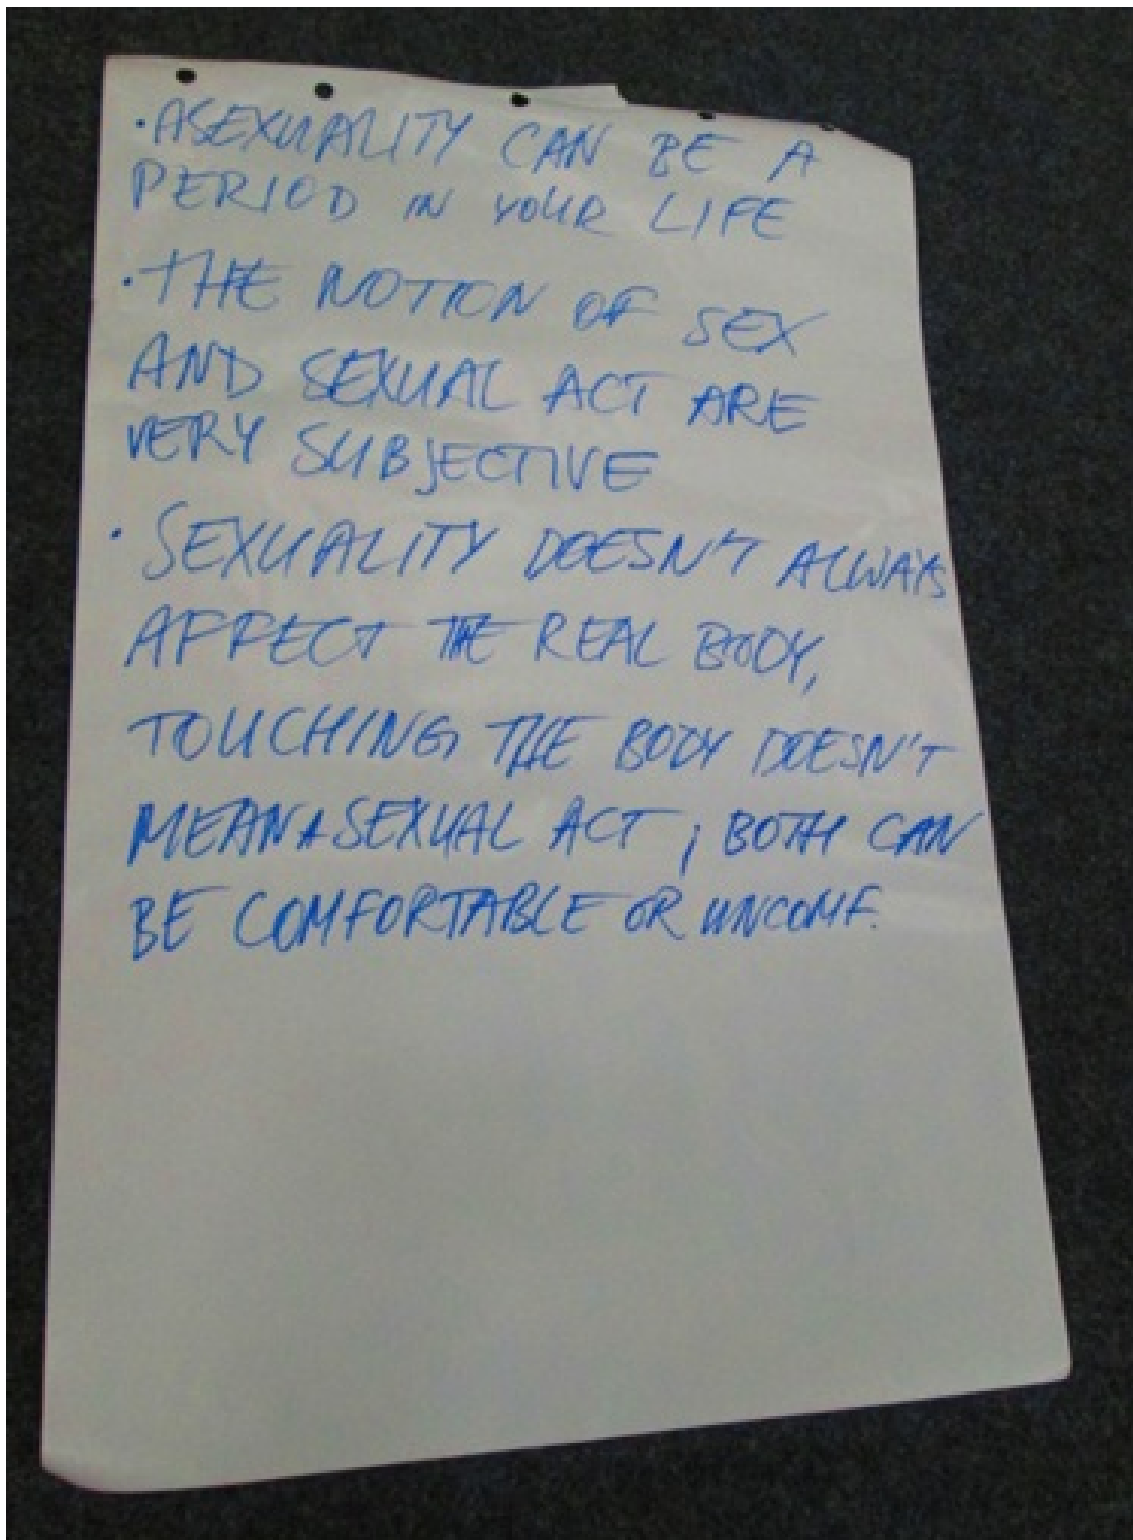 • ASEXUALITY CAN BE A
PERIOD IN YOUR LIFE
• THE NOTION OF SEX
AND SEXUAL ACT ARE
VERY SUBJECTIVE
• SEXUALITY DOESN'T ALWAYS
AFFECT THE REAL BODY,
TOUCHING THE BODY DOESN'T
MEAN A SEXUAL ACT ; BOTH CAN
BE COMFORTABLE OR UNCOMF.